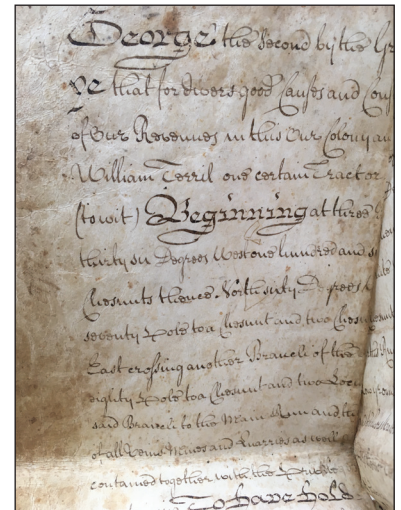 George the Second by the Gr
ye that for divers good Causes and Con
of Our Revenues in this Our Colony an
William Terril one certain Tract or
(to wit) Beginning at three
thirty six Degrees West one hundred and s
Chesnuts thence North sixty Degrees
seventy Pole to a Chesnut and two Chesnu
East crossing another Branch of the
eighty Pole to a Chesnut and two Locu
said Branch to the Main Run and the
of all Veins Mines and Quarries as well
contained together with the Privile
To have hold